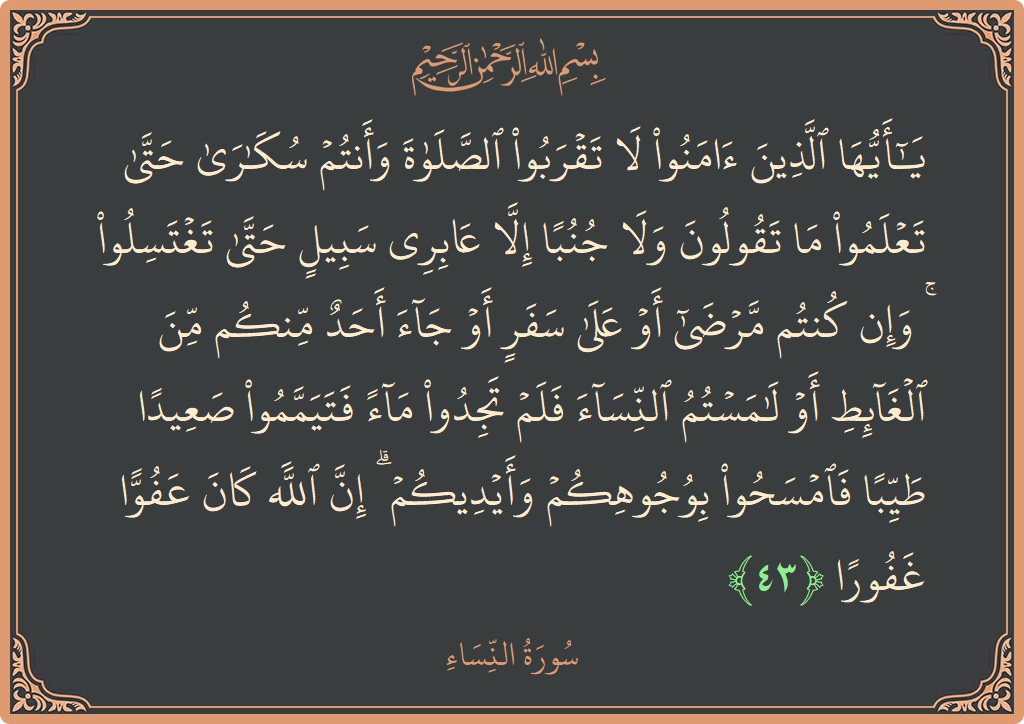 بِسْمِ اللَّهِ الرَّحْمَٰنِ الرَّحِيمِ
يَـٰٓأَيُّهَا ٱلَّذِينَ ءَامَنُوا۟ لَا تَقْرَبُوا۟ ٱلصَّلَوٰةَ وَأَنتُمْ سُكَـٰرَىٰ حَتَّىٰ
تَعْلَمُوا۟ مَا تَقُولُونَ وَلَا جُنُبًا إِلَّا عَابِرِى سَبِيلٍ حَتَّىٰ تَغْتَسِلُوا۟
ۚ وَإِن كُنتُم مَّرْضَىٰٓ أَوْ عَلَىٰ سَفَرٍ أَوْ جَآءَ أَحَدٌ مِّنكُم مِّنَ
ٱلْغَآئِطِ أَوْ لَـٰمَسْتُمُ ٱلنِّسَآءَ فَلَمْ تَجِدُوا۟ مَآءً فَتَيَمَّمُوا۟ صَعِيدًا
طَيِّبًا فَٱمْسَحُوا۟ بِوُجُوهِكُمْ وَأَيْدِيكُمْ ۗ إِنَّ ٱللَّهَ كَانَ عَفُوًّا
غَفُورًا ﴿٤٣﴾
سُورَةُ النِّسَاءِ